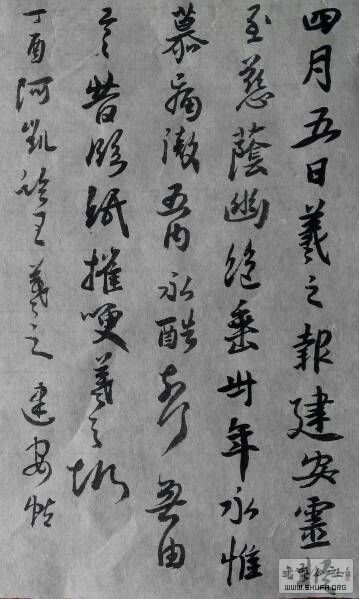 四月五日羲之報建安靈
至慈蔭幽絕垂卅年永惟
慕痛徹五内永酷奈何無由
言昔臨紙摧哽羲之報
丁酉阿凱臨王羲之建安帖
WWW.SHUFA.ORG